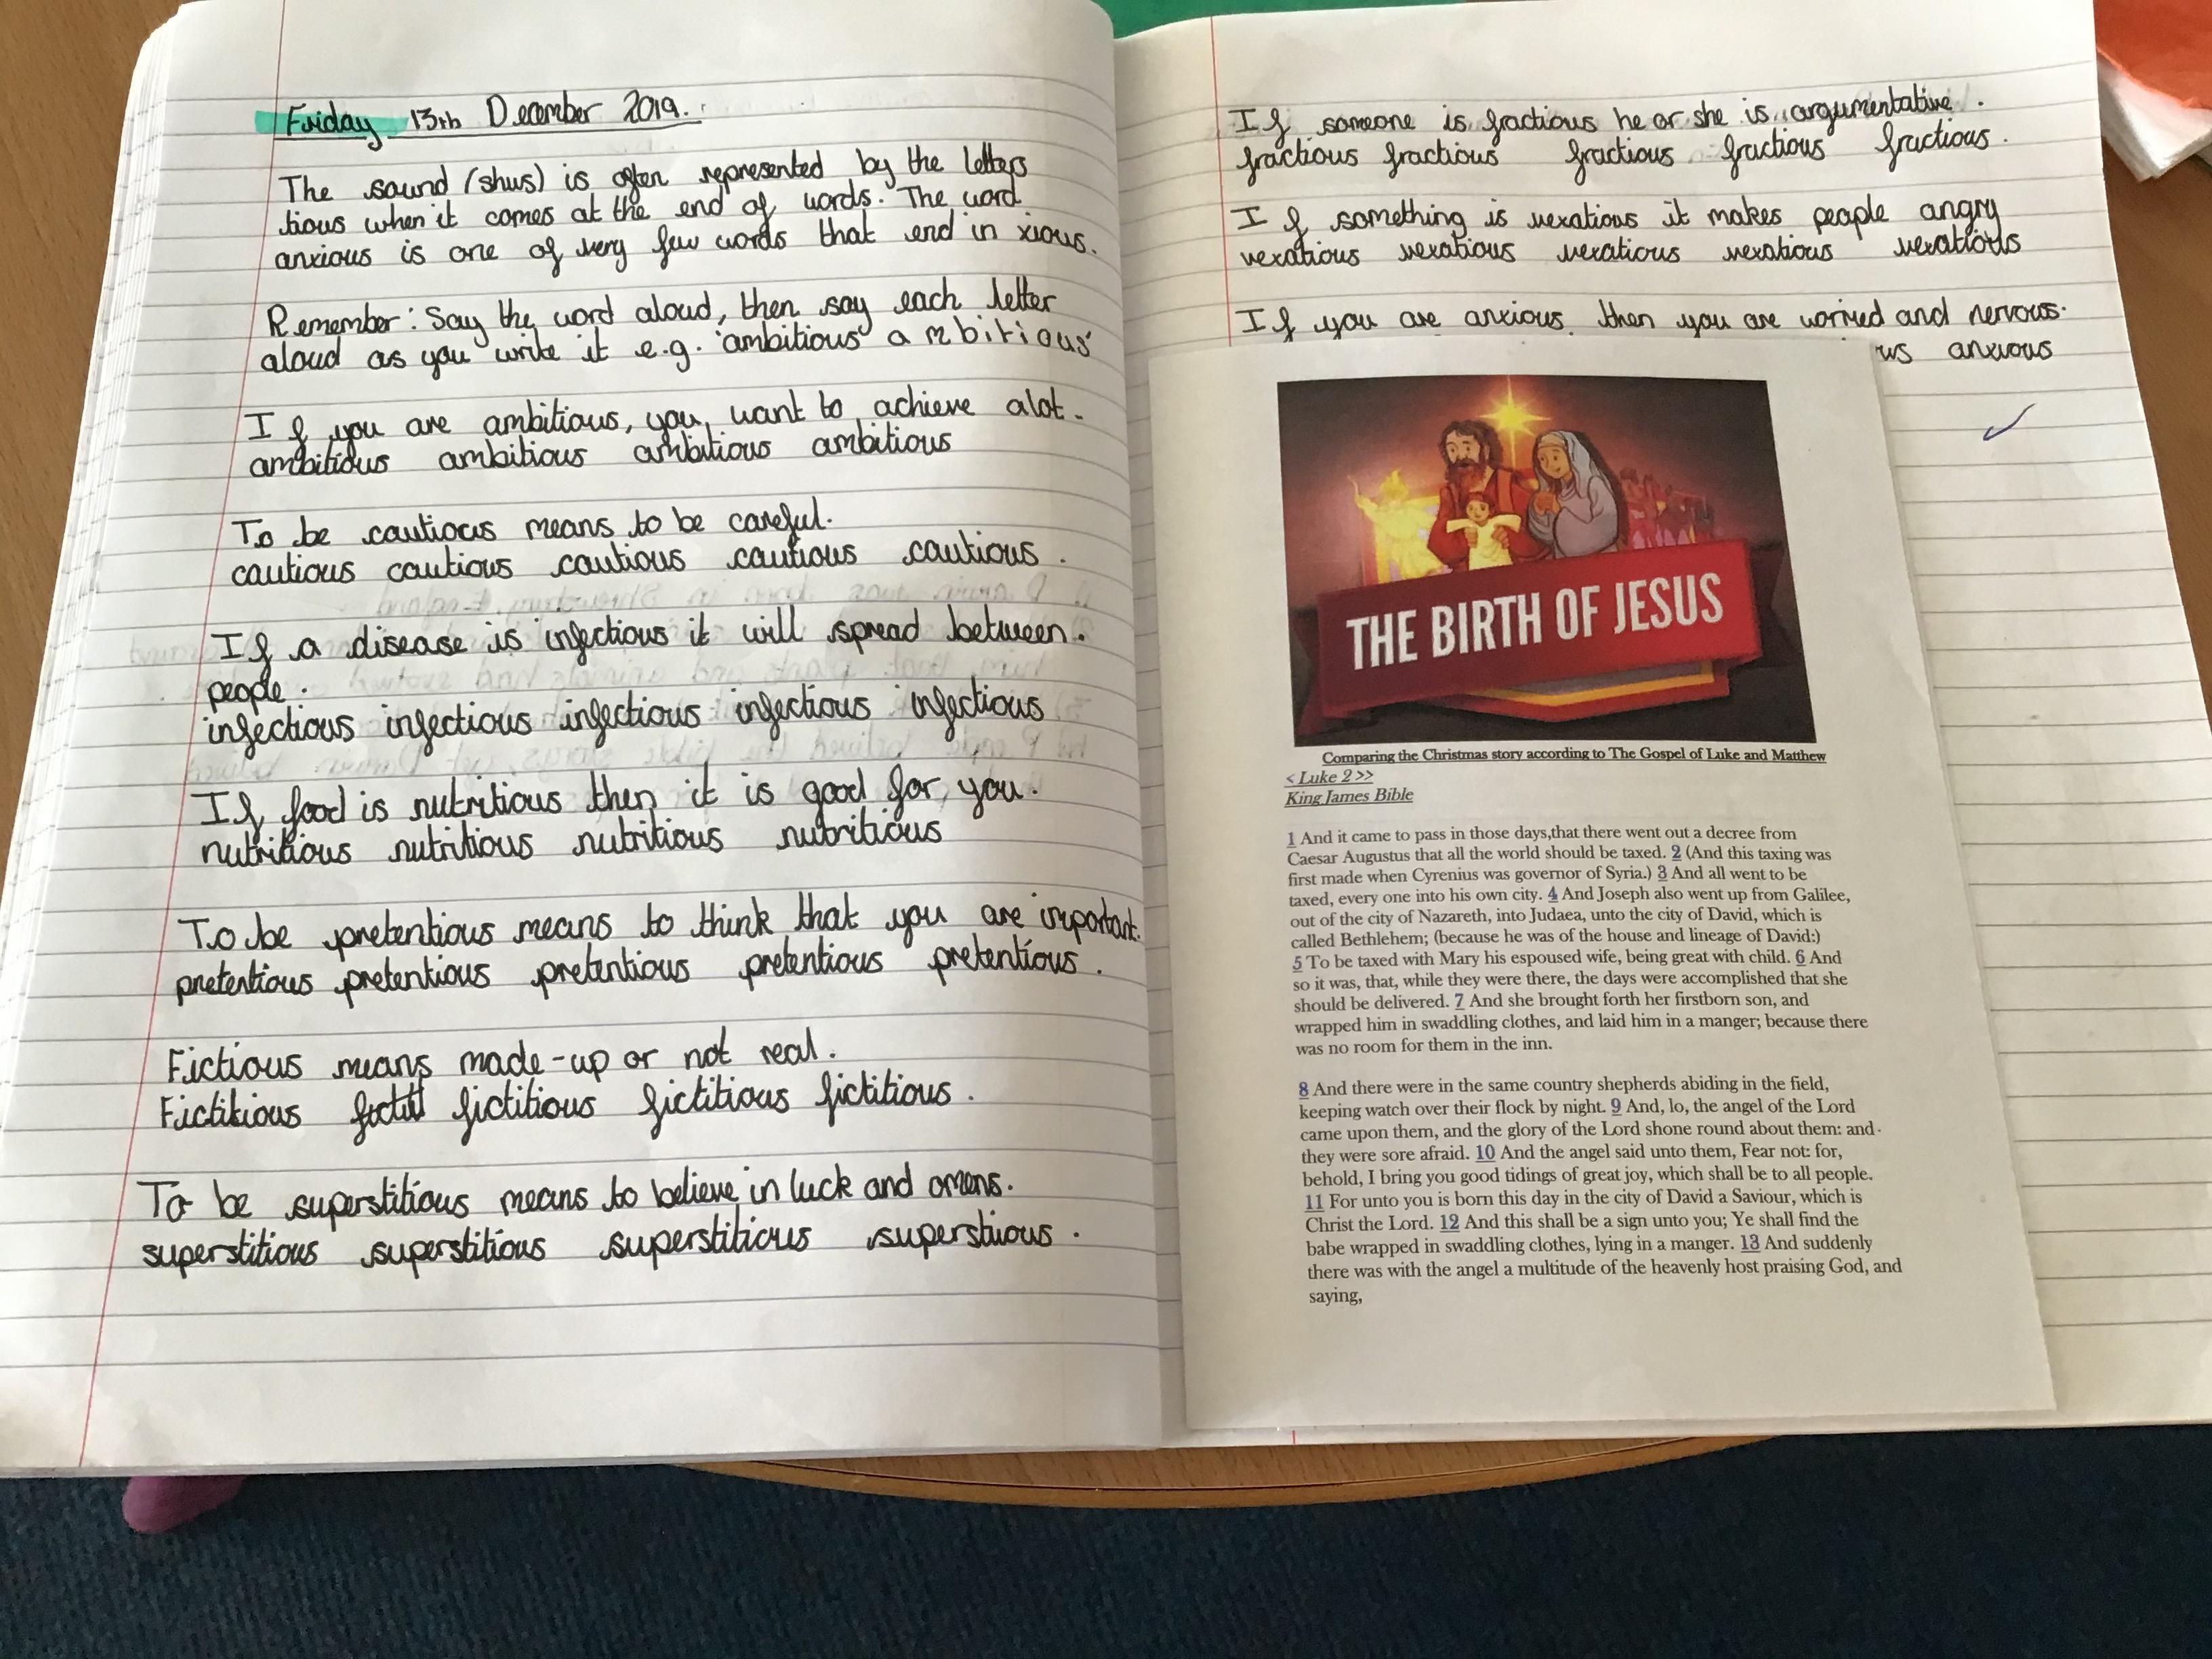 Friday 13th December 2019.
The sound (shus) is often represented by the letters
tious when it comes at the end of words. The word
anxious is one of very few words that end in xious.
Remember: Say the word aloud, then say each letter
aloud as you write it e.g. 'ambitious' a m b i t i o u s'
If you are ambitious, you want to achieve alot.
ambitious ambitious ambitious ambitious
To be cautious means to be careful.
cautious cautious cautious cautious cautious.
If a disease is infectious it will spread between.
people.
infectious infectious infectious infectious infectious
If food is nutritious then it is good for you.
nutritious nutritious nutritious nutritious
To be pretentious means to think that you are important.
pretentious pretentious pretentious pretentious pretentious.
Fictious means made-up or not real.
Fictitious fictitious fictitious fictitious.
To be superstitious means to believe in luck and omens.
superstitious superstitious superstitious superstious.
If someone is fractious he or she is argumentative.
fractious fractious fractious fractious fractious.
If something is vexatious it makes people angry
vexatious vexatious vexatious vexatious vexatious
If you are anxious then you are worried and nervous.
us anxious
THE BIRTH OF JESUS
Comparing the Christmas story according to The Gospel of Luke and Matthew
< Luke 2 >>
King James Bible
1 And it came to pass in those days,that there went out a decree from
Caesar Augustus that all the world should be taxed. 2 (And this taxing was
first made when Cyrenius was governor of Syria.) 3 And all went to be
taxed, every one into his own city. 4 And Joseph also went up from Galilee,
out of the city of Nazareth, into Judaea, unto the city of David, which is
called Bethlehem; (because he was of the house and lineage of David:)
5 To be taxed with Mary his espoused wife, being great with child. 6 And
so it was, that, while they were there, the days were accomplished that she
should be delivered. 7 And she brought forth her firstborn son, and
wrapped him in swaddling clothes, and laid him in a manger; because there
was no room for them in the inn.
8 And there were in the same country shepherds abiding in the field,
keeping watch over their flock by night. 9 And, lo, the angel of the Lord
came upon them, and the glory of the Lord shone round about them: and
they were sore afraid. 10 And the angel said unto them, Fear not: for,
behold, I bring you good tidings of great joy, which shall be to all people.
11 For unto you is born this day in the city of David a Saviour, which is
Christ the Lord. 12 And this shall be a sign unto you; Ye shall find the
babe wrapped in swaddling clothes, lying in a manger. 13 And suddenly
there was with the angel a multitude of the heavenly host praising God, and
saying,